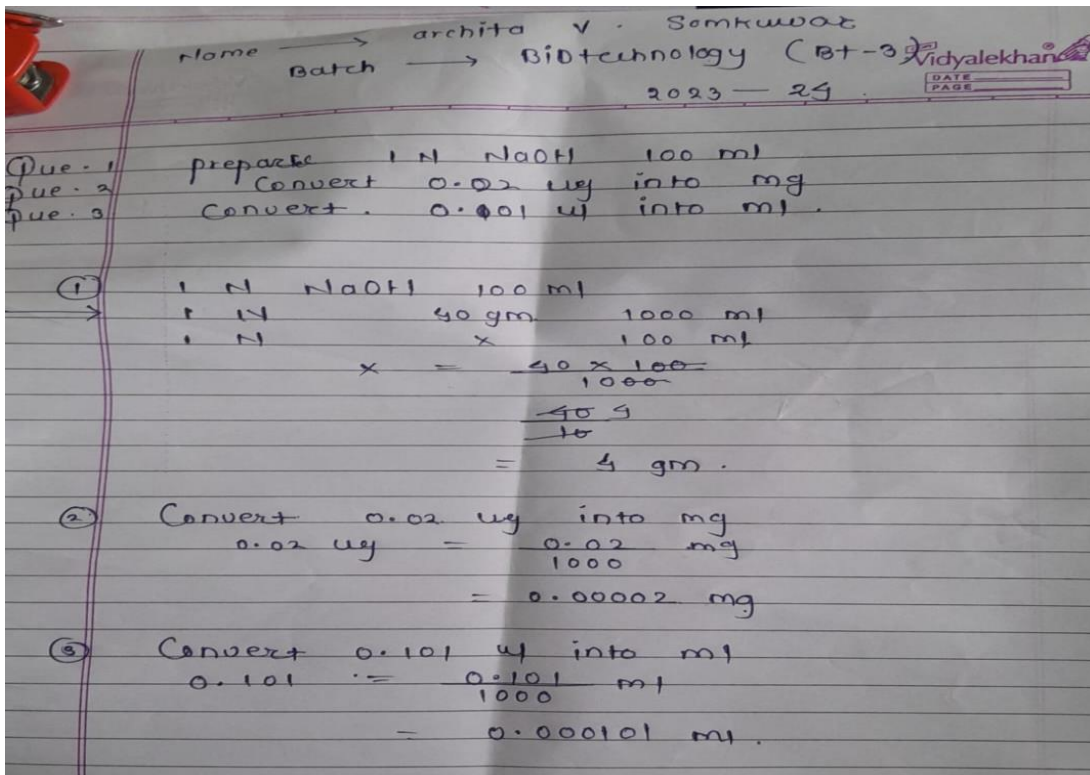 Name → archita V. Somkuwar
Batch → BiOtechnology (Bt-3)
Vidyalekhan®
DATE
PAGE
2023 — 24
Que. 1 prepare 1 N NaOH 100 ml
Que. 2 Convert 0.02 ug into mg
Que. 3 Convert. 0.101 ul into ml.
① 1 N NaOH 100 ml
→ 1 N 40 gm 1000 ml
1 N x 100 ml
x = 40 x 100
1000
40 4
10
= 4 gm.
② Convert 0.02 ug into mg
0.02 ug = 0.02 mg
1000
= 0.00002 mg
③ Convert 0.101 ul into ml
0.101 = 0.101 ml
1000
= 0.000101 ml.